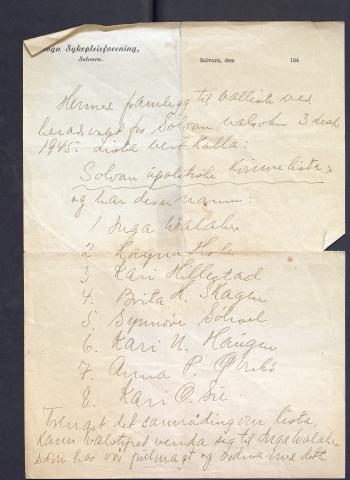 ogn Sykepleieforening,
Solvorn.
Solvorn, den 194
Hermed framlegg til valliste ved
heradsvalet for Solvorn valsokn 3 des.
1945. Lista vert kalla:
Solvorn upolitiske Kvinneliste
og har desse namn:
1 Inga Walaker
2 Lagna
3 Kari Hillestad
4. Brita H. Skagen
5. Synnøve Solvoll
6. Kari N. Haugen
7. Anna P. Ørebø
8. Kari O. Sie
Trengst det samråding om lista,
kann valstyret venda seg til Inga Walaker
som har vår fullmagt og ordna med dette